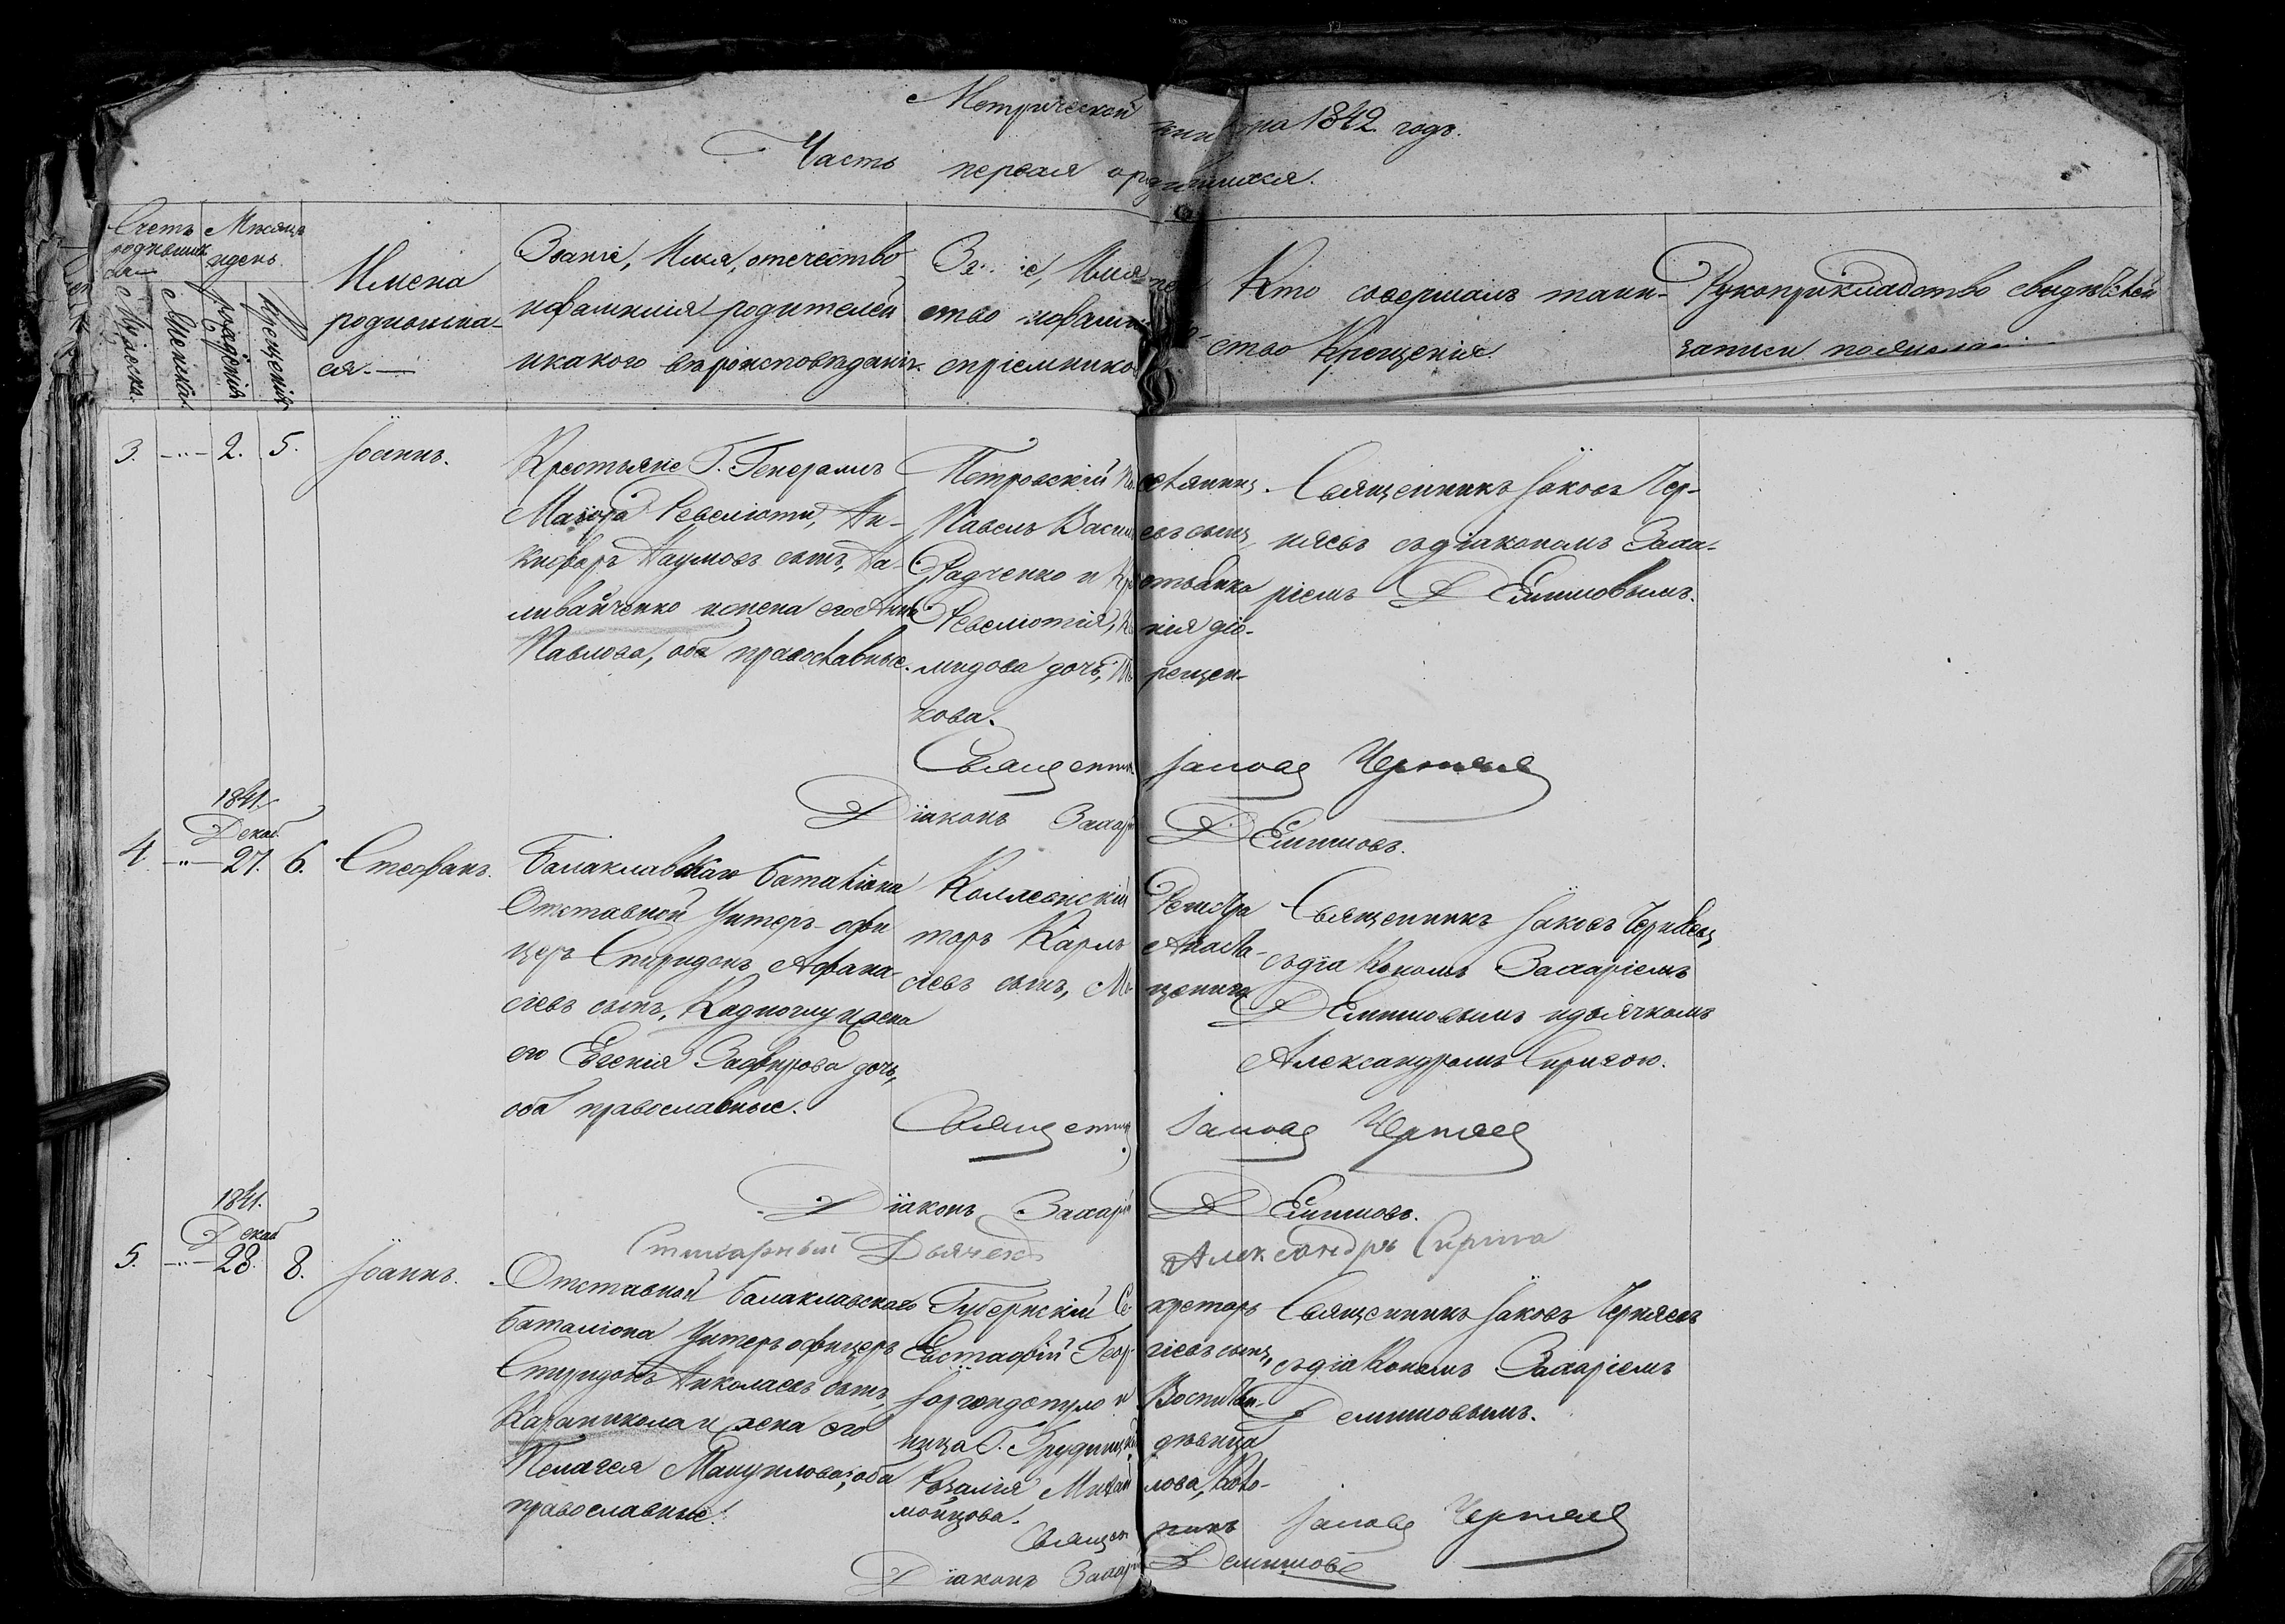 Метрической книги на 1842 годъ.
Часть первая о родившихся.
Счетъ родившихся
Мѣсяцъ и день
Мужеска.
Женска.
рожденія
крещенія
Имена
родившиха-
ся.—
Званіе, Имя, отечество
и фамилія родителей
и какого вѣроисповѣданія.
Званіе, Имя, отече-
ство и фамилія во-
спріемниковъ
Кто совершалъ таин-
ство Крещенія.
Рукоприкладство свидѣтелей
записи по желанію
3. —"— 2. 5. Іоаннъ.
Крестьяне Г. Генералъ
Маіора Ревеліоти, Ни-
кифоръ Наумовъ сынъ, На-
ливайченко и жена его Анна
Павлова, оба православные.
Петровскій поселянинъ
Павелъ Васильевъ сынъ
Радченко и крестьянка
Ревеліотія,
мидова дочь,
кова.
Священникъ Іаковъ Чер-
няевъ съ діакономъ Заха-
ріемъ Демишовымъ.
Священникъ Іаковъ Черняев
Діаконъ Захарій Демишовъ.
1841.
Декаб.
4. —"— 27. 6. Стефанъ.
Балаклавскаго баталіона
Отставной Унтеръ-офи
церъ Спиридонъ Афана-
сіевъ сынъ, Кадиоглу и жена
его Евгенія Зафирова дочь,
оба православные.
Коллежскій Регистра
торъ Карлъ Анаста-
сіевъ сынъ,
Священникъ Іаковъ Черняевъ
съ діакономъ Захаріемъ
Демишовымъ и дьячкомъ
Александромъ Сиригою.
Священникъ Іаковъ Черняев
Діаконъ Захарій Демишовъ.
Стихарный Дьячекъ Александръ Сирига
1841.
Декаб
5. —"— 28. 8. Іоаннъ.
Отставной Балаклавскаго
баталіона Унтеръ офицеръ
Спиридонъ Николаевъ сынъ,
Караникола и жена его
Пелагея Мануилова, оба
православные.
Губернскій Секретарь
Евстафій Георгіевъ сынъ,
и Воспитан-
ница Г. дѣвица
Розалія Михайлова,
мойцова.
Священникъ Іаковъ Черняевъ
съ діакономъ Захаріемъ
Демишовымъ.
Священникъ Іаковъ Черняев
Діаконъ Захарій Демишовъ